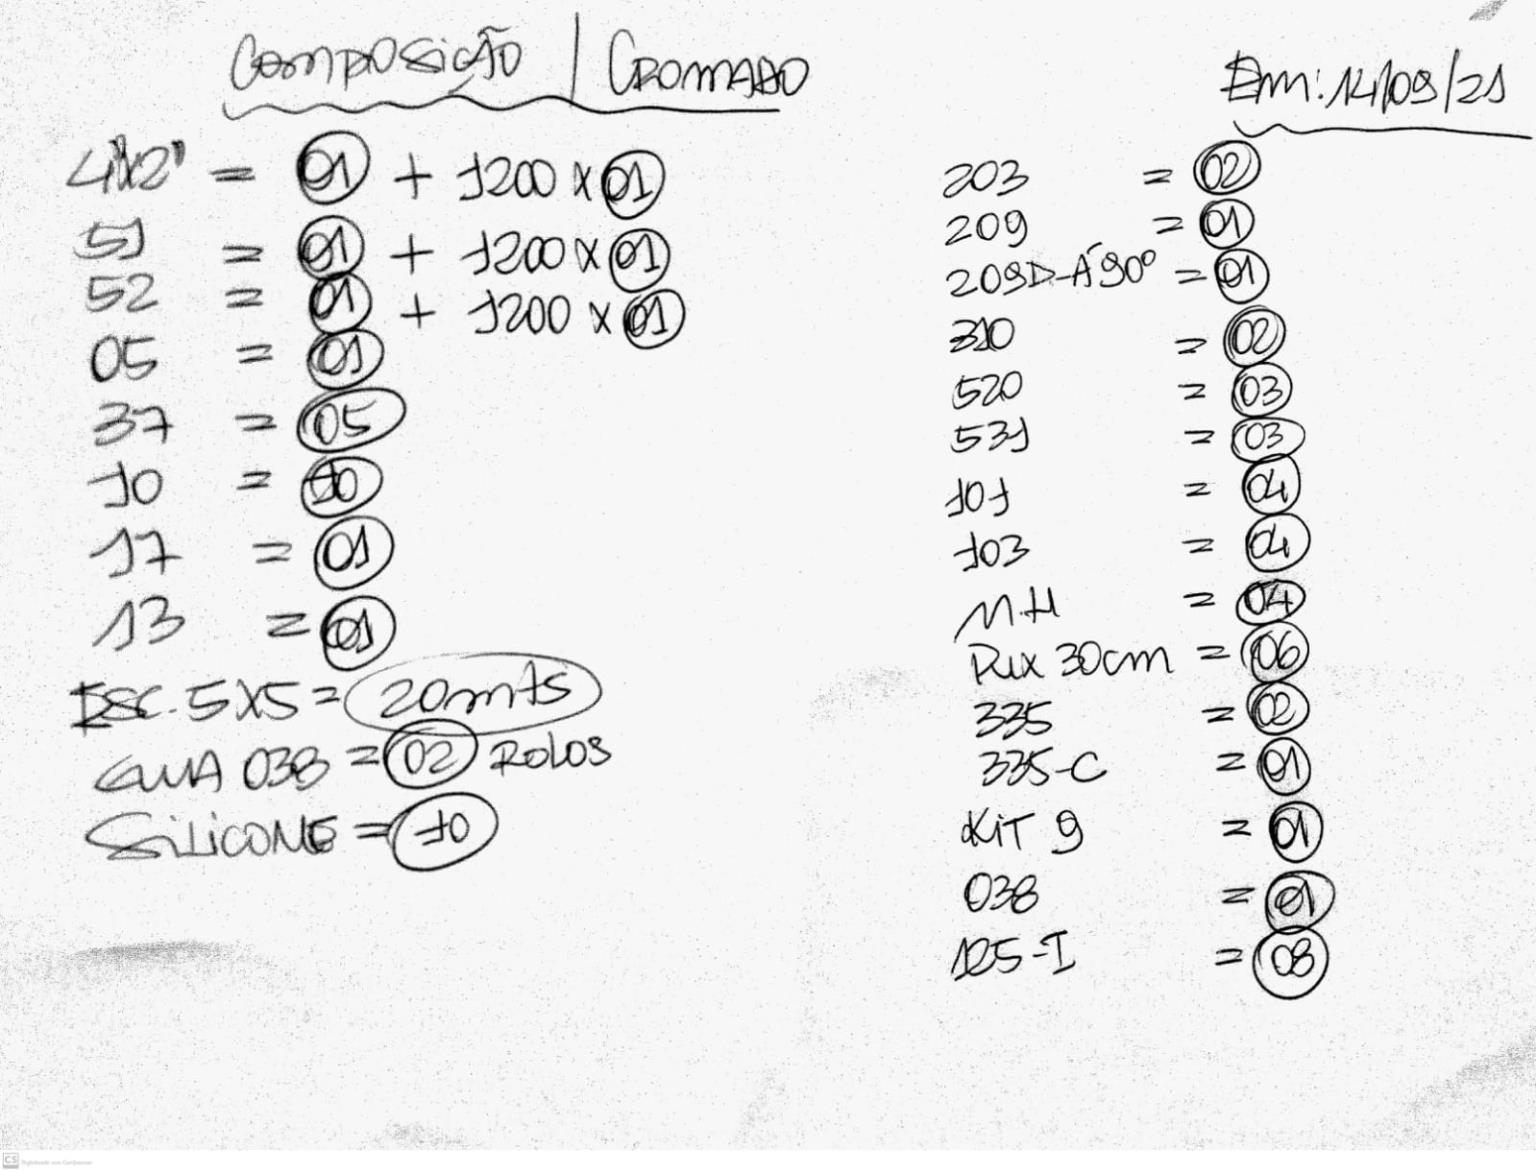 Composição | Cromado
Em: 14/09/21
4"x2" = 01 + 1200 x 01
51 = 01 + 1200 x 01
52 = 01 + 1200 x 01
05 = 01
37 = 05
10 = 10
17 = 01
13 = 01
ESC. 5x5 = 20mts
GUIA 038 = 02 ROLOS
SILICONE = 10
203 = 02
209 = 01
209D-Á90° = 01
310 = 02
520 = 03
531 = 03
101 = 04
103 = 04
M.H = 04
Pux 30cm = 06
335 = 02
335-C = 01
KIT 9 = 01
038 = 01
125-I = 08
CS Digitalizado com CamScanner